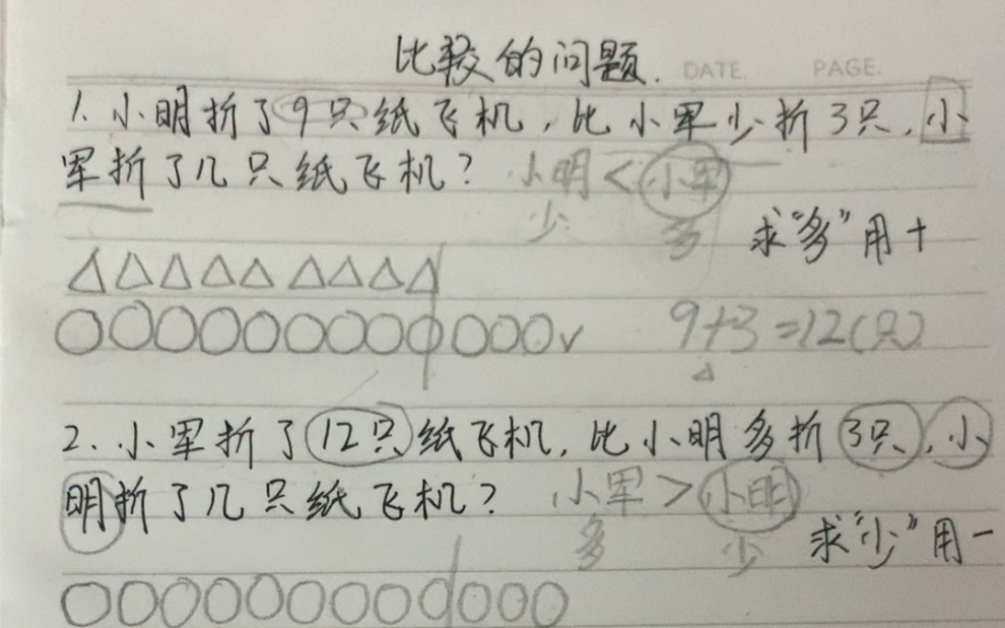 比较的问题.
DATE. PAGE.
1. 小明折了9只纸飞机,比小军少折3只,小
军折了几只纸飞机? 小明<小军
少 多 求“多”用+
9+3=12(只)
2. 小军折了12只纸飞机,比小明多折3只,小
明折了几只纸飞机? 小军>小明
多 少 求“少”用-